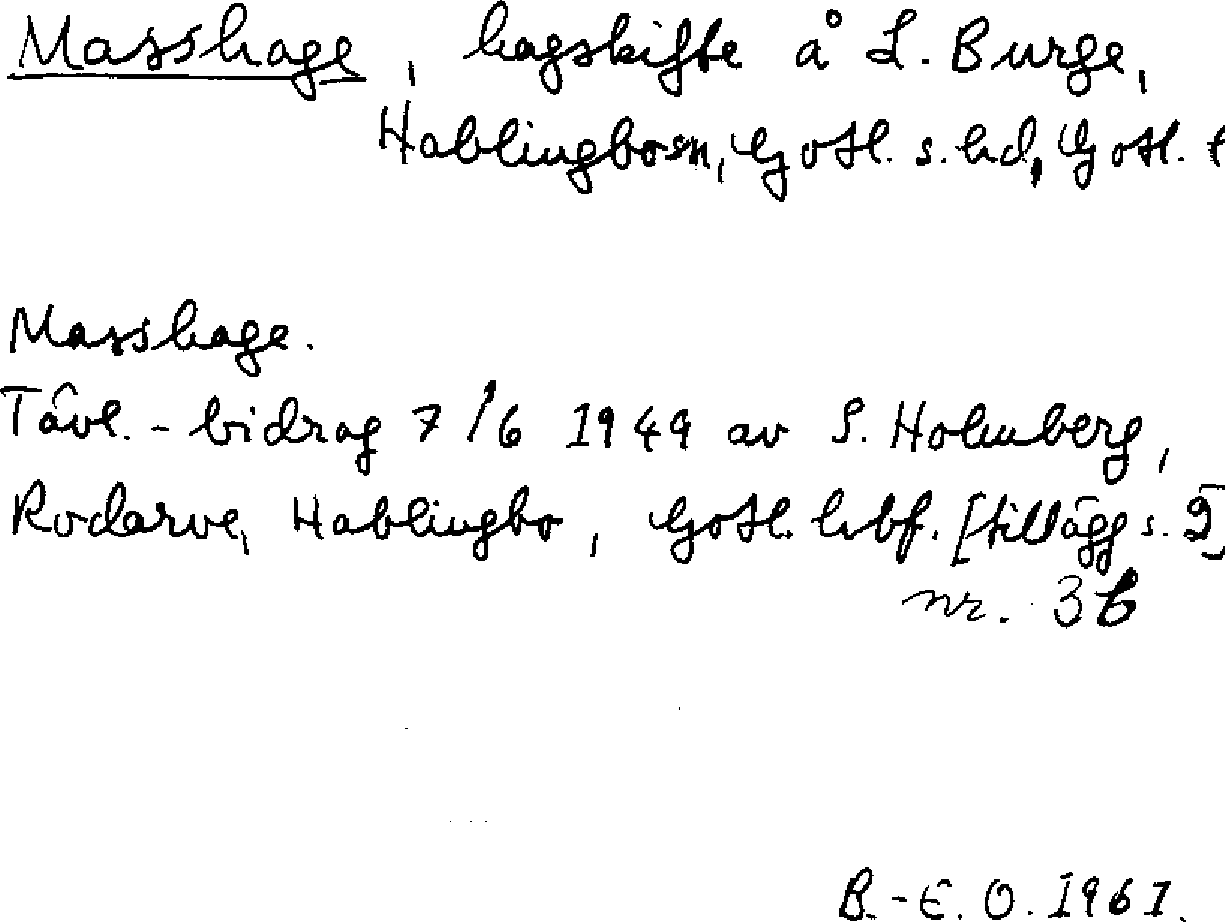 Masshage, hagskifte å L. Burge,
Hablingbo sn, Gotl. s. hd, Gotl. l
Masshage.
Tävl.-bidrag 7/6 1949 av S. Holmberg,
Rodarve, Hablingbo, Gotl. hbf. [tillägg s. 9]
nr. 3b
B.-E. O. 1961.